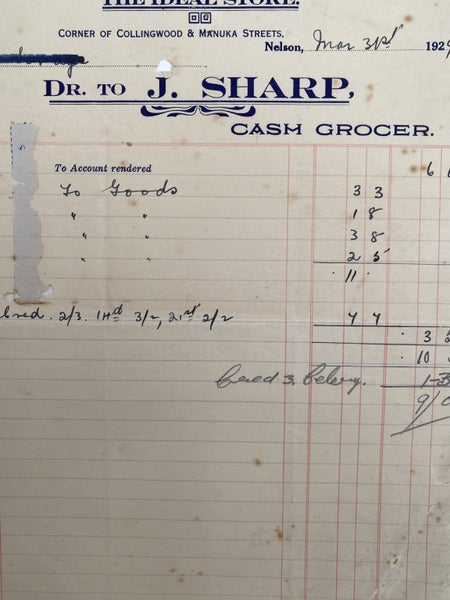 THE IDEAL STORE.
CORNER OF COLLINGWOOD & MANUKA STREETS.
Nelson, Mar 31st 192
DR. TO J. SHARP,
CASH GROCER.
To Account rendered 6
To Goods 3 3
" " 1 8
" " 3 8
" " 2 5
11 -
Cred. 2/3. 1/4d 3/2, 21st 2/2 7 7
3
10
Cred 3. Celery. 1-3
9/